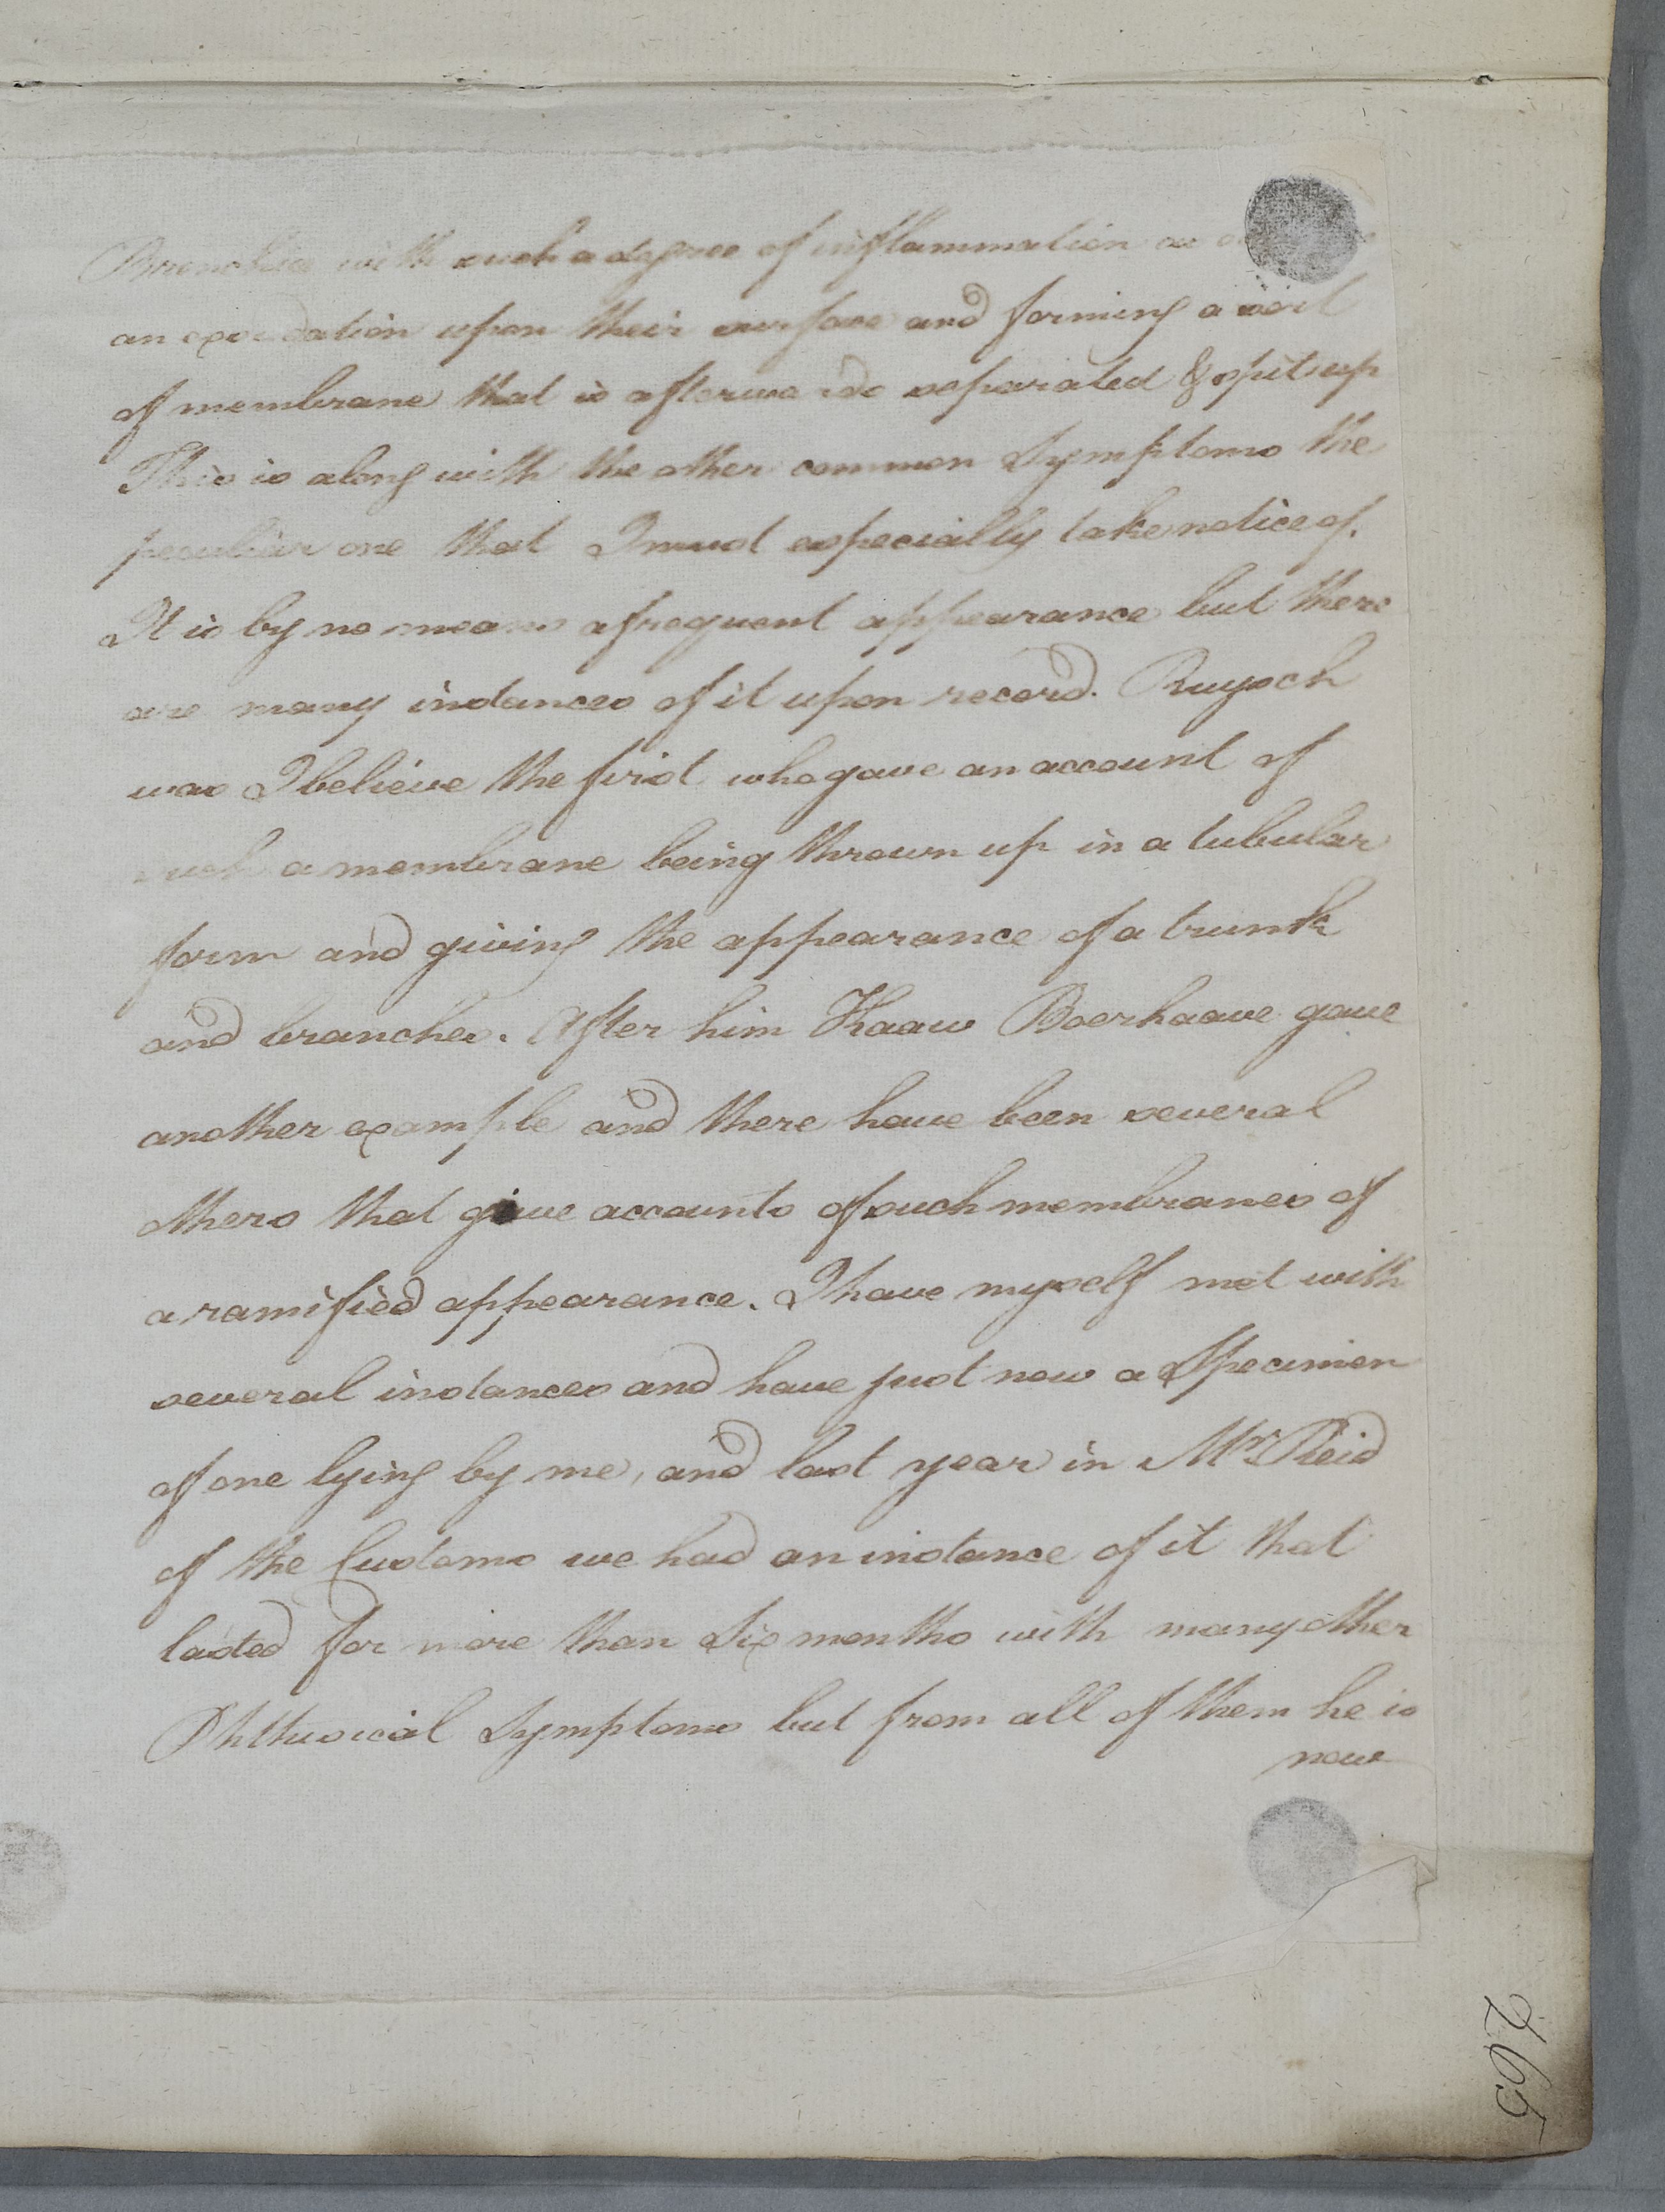 Bronchia with such a degree of inflammation as
an exudation upon their surface and forming a sort
of membrane that is afterwards separated & spit up
This is along with the other common Symptoms the
peculiar one that I must especially take notice of.
It is by no means a frequent appearance but there
are many instances of it upon record. Ruysch
was I believe the first who gave an account of
such a membrane being thrown up in a tubular
form and giving the appearance of a trunk
and branches. After him Kaaw Boerhaave gave
another example and there have been several
others that give accounts of such membranes of
a ramified appearance. I have myself met with
several instances and have just now a Specimen
of one lying by me, and last year in Mr Reid
of the Customs we had an instance of it that
lasted for more than Six months with many other
Phthisical Symptoms but from all of them he is
now
265